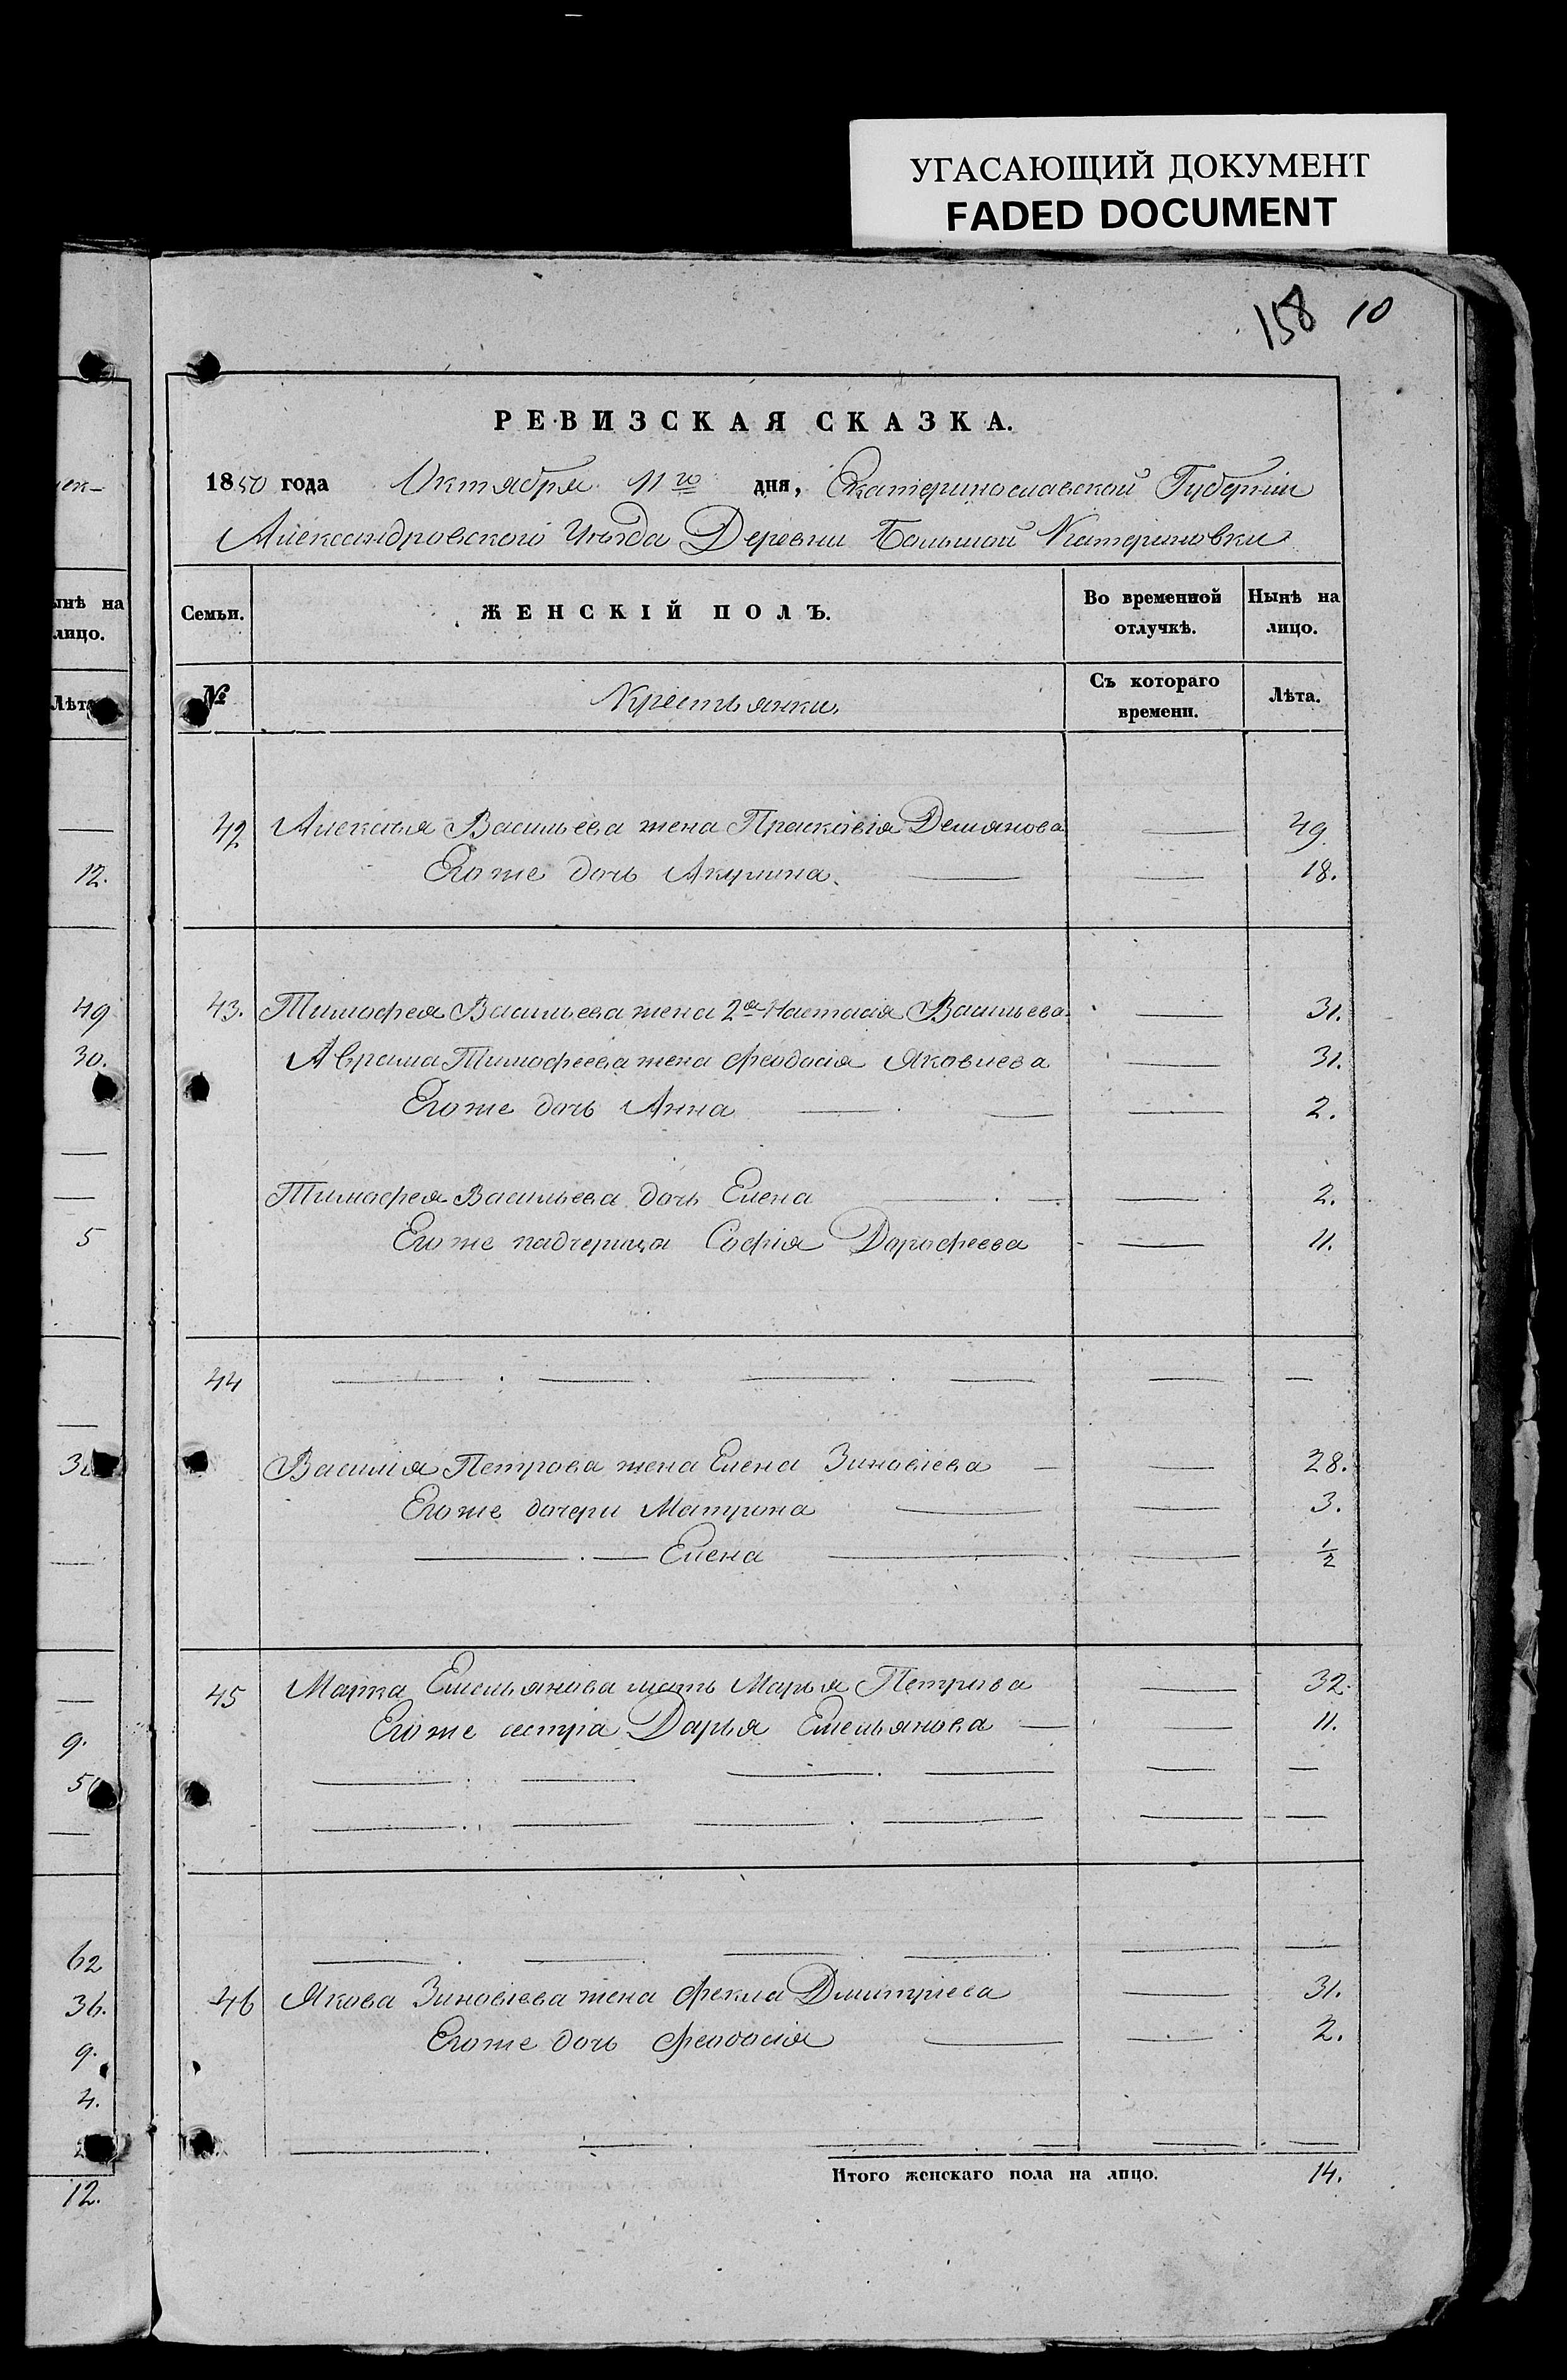 УГАСАЮЩИЙ ДОКУМЕНТ
FADED DOCUMENT
158 10
РЕВИЗСКАЯ СКАЗКА.
1850 года Октября 11го дня, Екатеринославской Губернiи
Александровского Уѣзда Деревни Большой Катериновки
Семьи. ЖЕНСКIЙ ПОЛЪ. Во временной отлучкѣ. Нынѣ на лицо.
№ Крестьянки. Съ котораго времени. Лѣта.
42 Алексѣя Васильева жена Прасковiя Демянова — 49.
Его же дочь Акулина. — — 18.
43. Тимофея Васильева жена 2я Настасiя Васильева — 31.
Аврама Тимофеева жена Феодосiя Яковлева — 31.
Его же дочь Анна — — — 2.
Тимофея Васильева дочь Елена — — — 2.
Его же падчерица Софiя Дорофеева — — 11.
44 — — — — — —
Василiя Петрова жена Елена Зиновiева — — 28.
Его же дочери Матрона — — 3.
— — Елена — — 1/2
45 Марка Емельянова мать Марья Петрова — 32.
Его же сестра Дарья Емельянова — — 11.
— — — — — —
— — — — — —
— — — — — —
46 Якова Зиновiева жена Фекла Дмитрiева — 31.
Его же дочь Феодосiя — — 2.
— — — — — —
Итого женскаго пола на лицо. 14.
ынѣ на
лицо.
Лѣта
12.
49
30.
5
9.
62
36.
9.
4.
12.